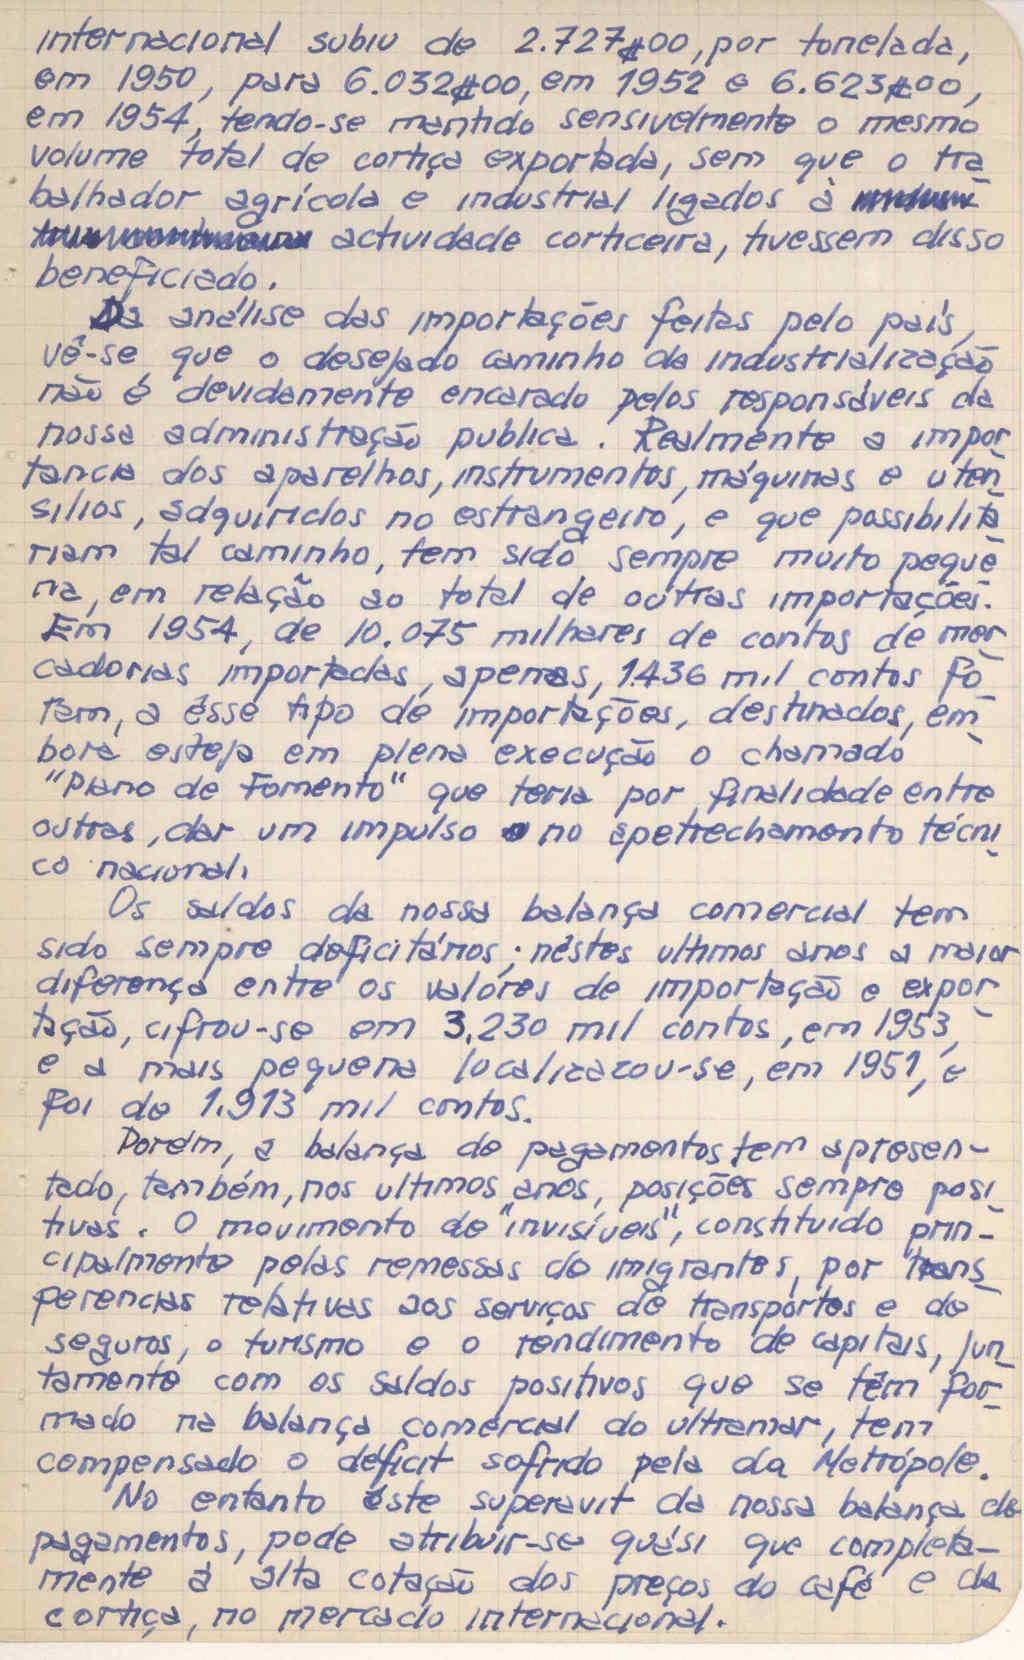 internacional subiu de 2.727$00, por tonelada,
em 1950, para 6.032$00, em 1952 e 6.623$00,
em 1954, tendo-se mantido sensivelmente o mesmo
volume total de cortiça exportada, sem que o tra
balhador agrícola e industrial ligados à
actividade corticeira, tivessem disso
beneficiado.
Da análise das importações feitas pelo país,
vê-se, que o desejado caminho da industrialização
não é devidamente encarado pelos responsáveis da
nossa administração publica. Realmente a impor
tancia dos aparelhos, instrumentos, máquinas e uten
silios, adquiridos no estrangeiro, e que possibilita
riam tal caminho, tem sido sempre muito peque
na, em relação ao total de outras importações.
Em 1954, de 10.075 milhares de contos de mer
cadorias importadas, apenas, 1.436 mil contos fo
ram, a êsse tipo de importações, destinados, em
bora esteja em plena execução o chamado
"Plano de Fomento" que teria por finalidade entre
outras, dar um impulso no apetrechamento técni
co nacional.
Os saldos da nossa balança comercial tem
sido sempre deficitários; nêstes ultimos anos a maior
diferença entre os valores de importação e expor
tação, cifrou-se em 3.230 mil contos, em 1953,
e a mais pequena localizazou-se, em 1951, e
foi de 1.913 mil contos.
Porém, a balança de pagamentos tem apresen-
tado, também, nos ultimos anos, posições sempre posi
tivas. O movimento de "invisíveis", constituido prin-
cipalmente pelas remessas de imigrantes, por trans
ferencias relativas aos serviços de transportes e de
seguros, o turismo e o rendimento de capitais, jun
tamente com os saldos positivos que se têm for
mado na balança comercial do ultramar, tem
compensado o déficit sofrido pela da Metrópole.
No entanto êste superavit da nossa balança de
pagamentos, pode atribuir-se quási que completa-
mente à alta cotação dos preços do café e da
cortiça, no mercado internacional.